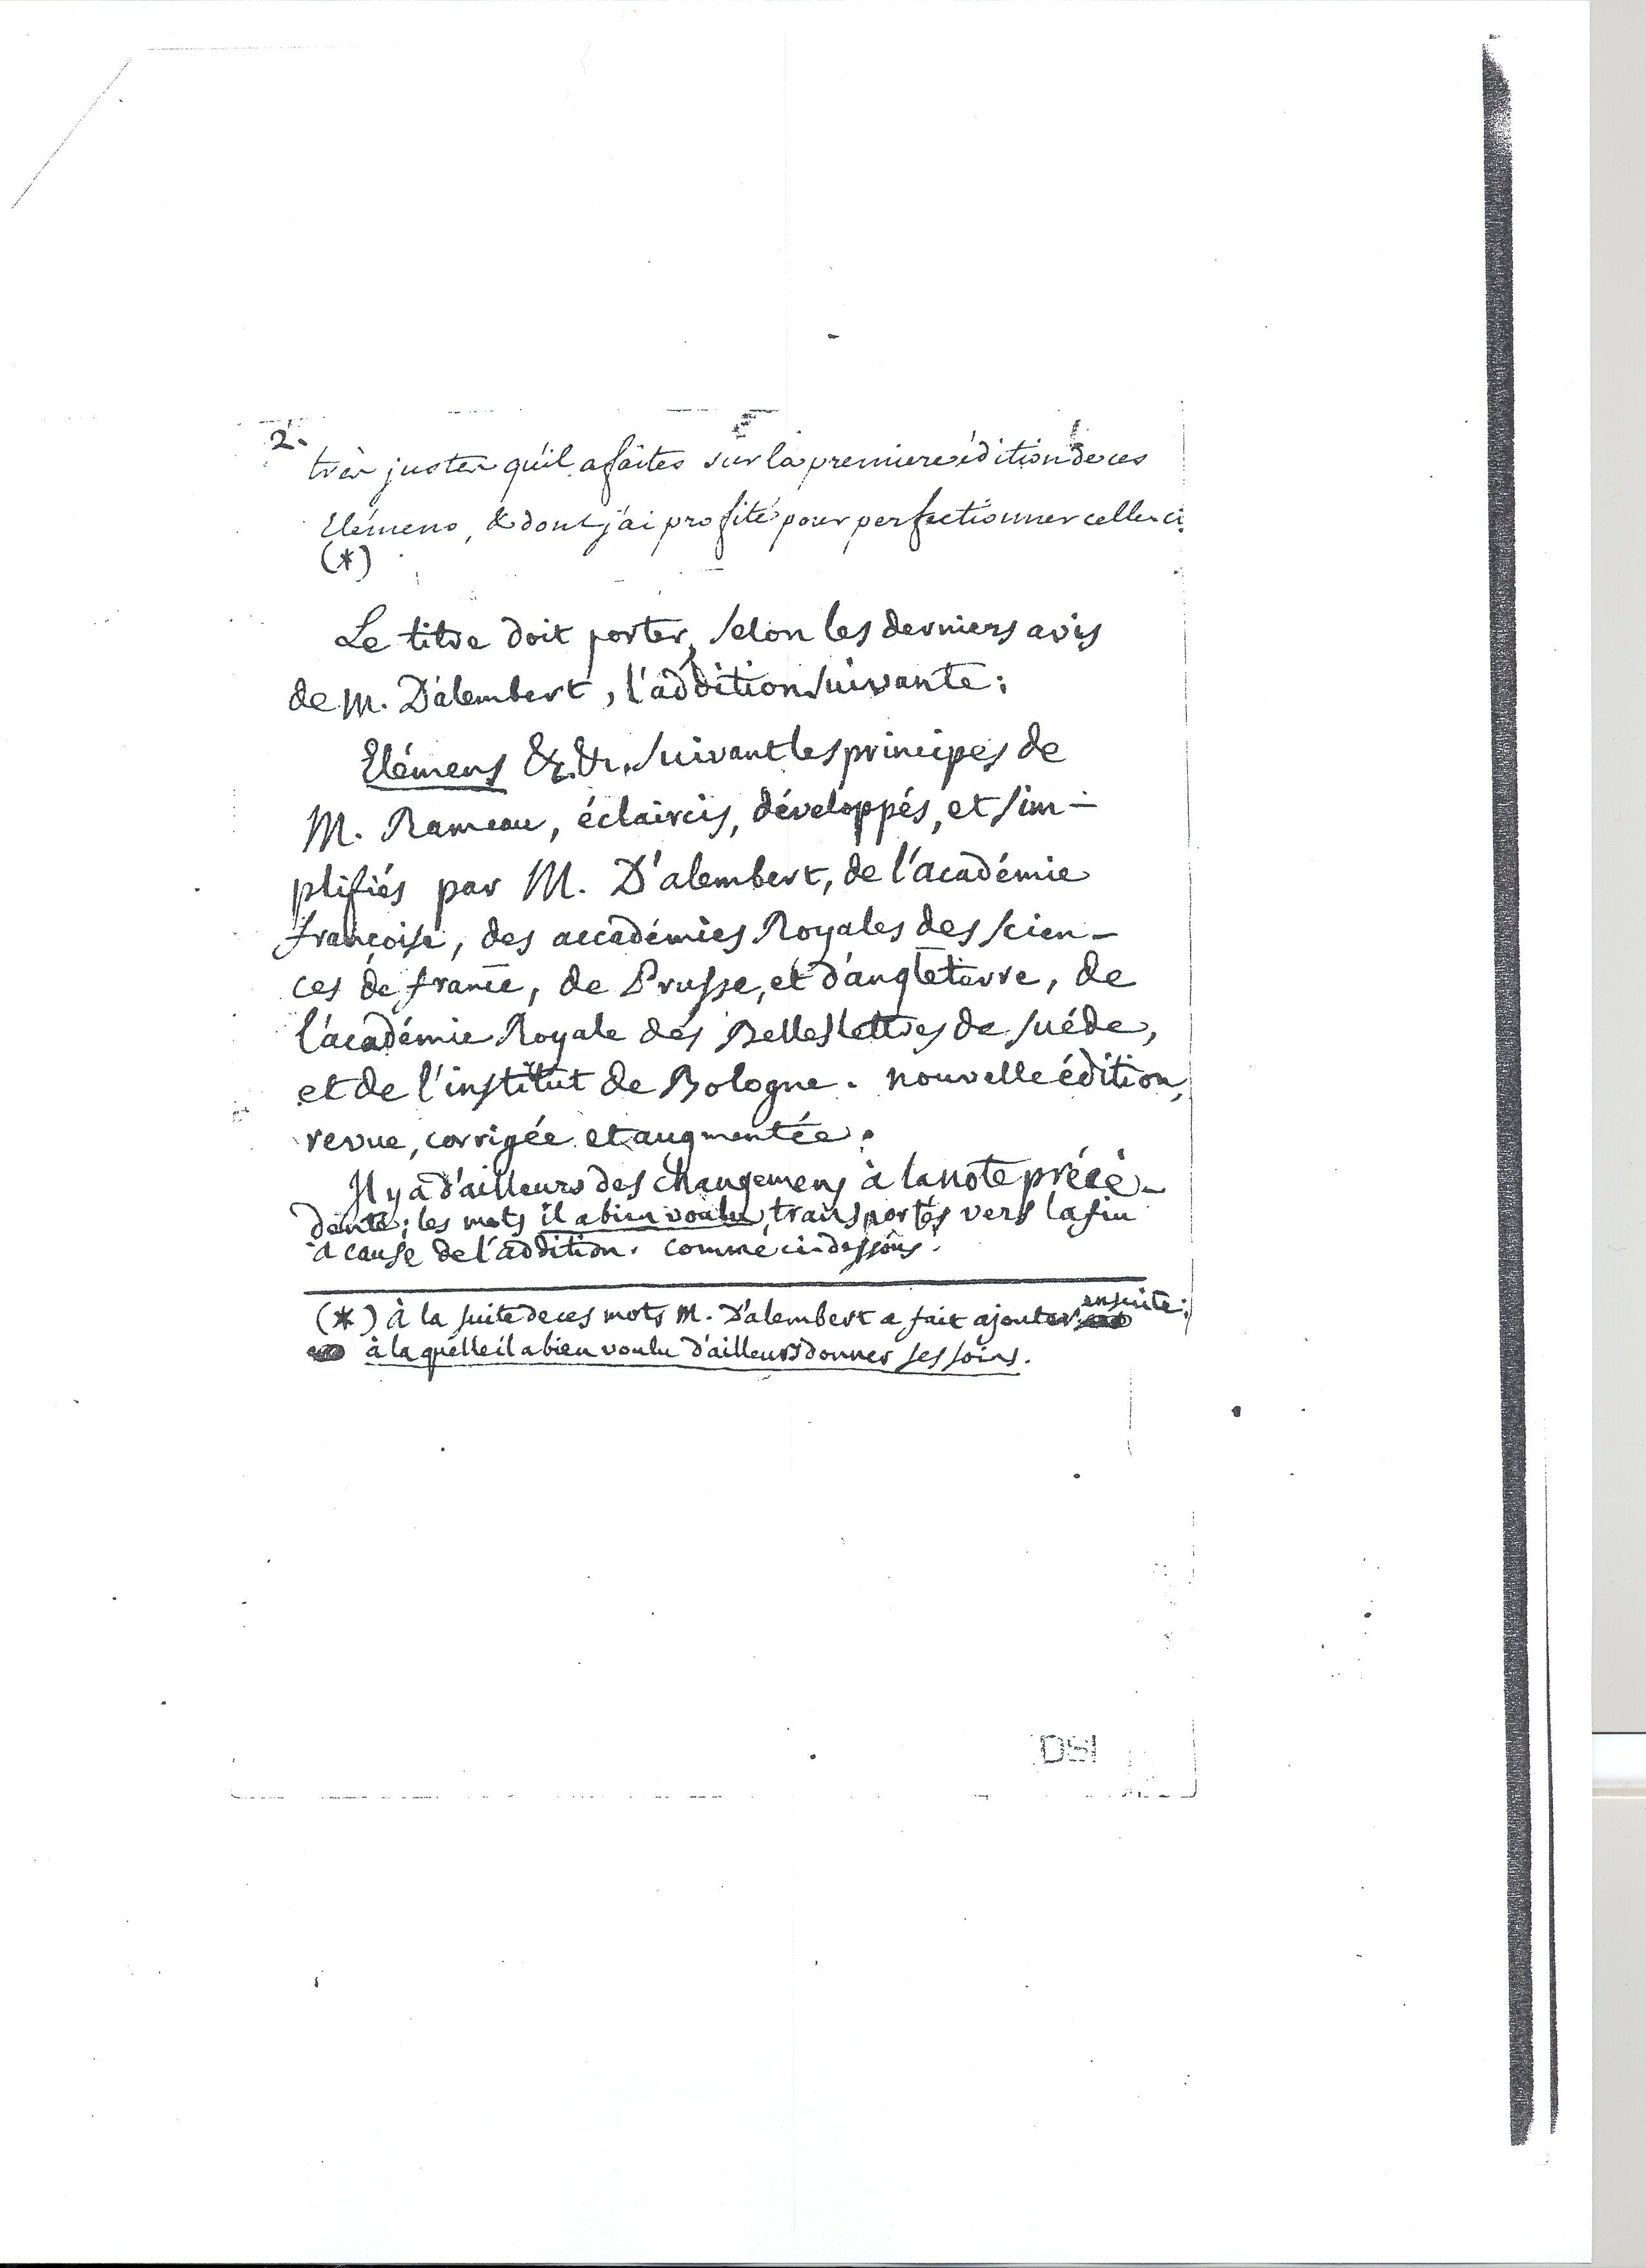 2.
très justes qu'il a faites sur la premiere édition de ces
Elémens, & dont j'ai profité pour perfectionner celle-ci.
(*)
Le titre doit porter, selon les derniers avis
de M. D'alembert, l'addition suivante:
Elémens &c. &c. suivant les principes de
M. Rameau, éclaircis, développés, et sim-
plifiés par M. D'alembert, de l'académie
françoise, des accadémies Royales des scien-
ces de france, de Prusse, et d'angleterre, de
l'académie Royale des Belles lettres de suéde,
et de l'institut de Bologne. nouvelle édition,
revue, corrigée et augmentée.
Il y a d'ailleurs des changemens à la note précé-
dente; les mots il a bien voulu, transportés vers la fin
à cause de l'addition. comme ci-dessous.
(*) à la suite de ces mots M. D'alembert a fait ajouter ensuite:
à laquelle il a bien voulu d'ailleurs donner ses soins.
DSI